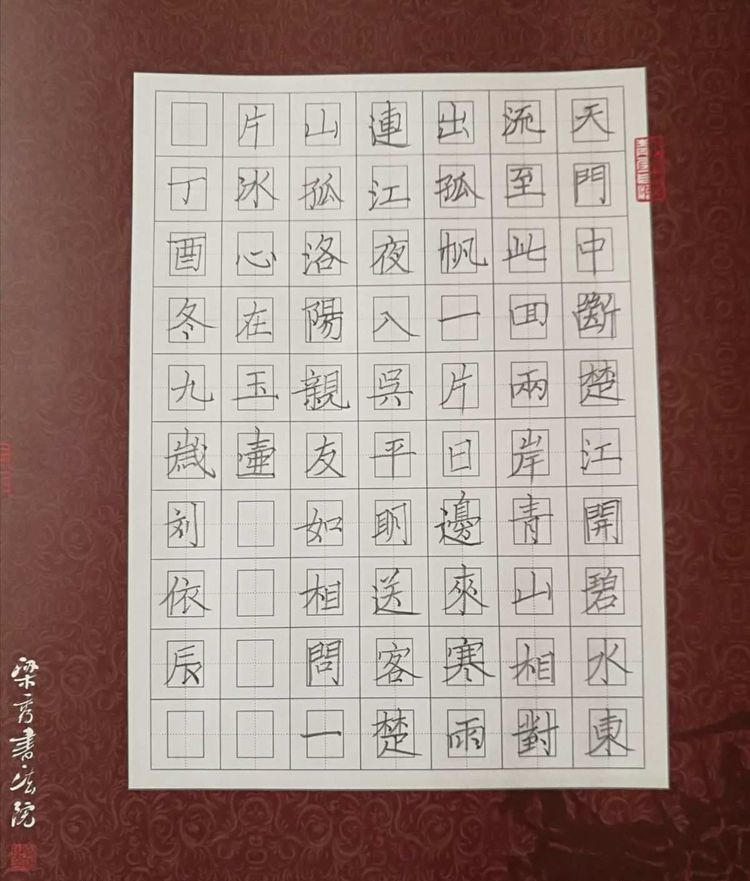 天門中斷楚江開碧水東
流至此回兩岸青山相對
出孤帆一片日邊來寒雨
連江夜入吳平明送客楚
山孤洛陽親友如相問一
片冰心在玉壺
丁酉冬九歲刘依辰
梁秀書法院